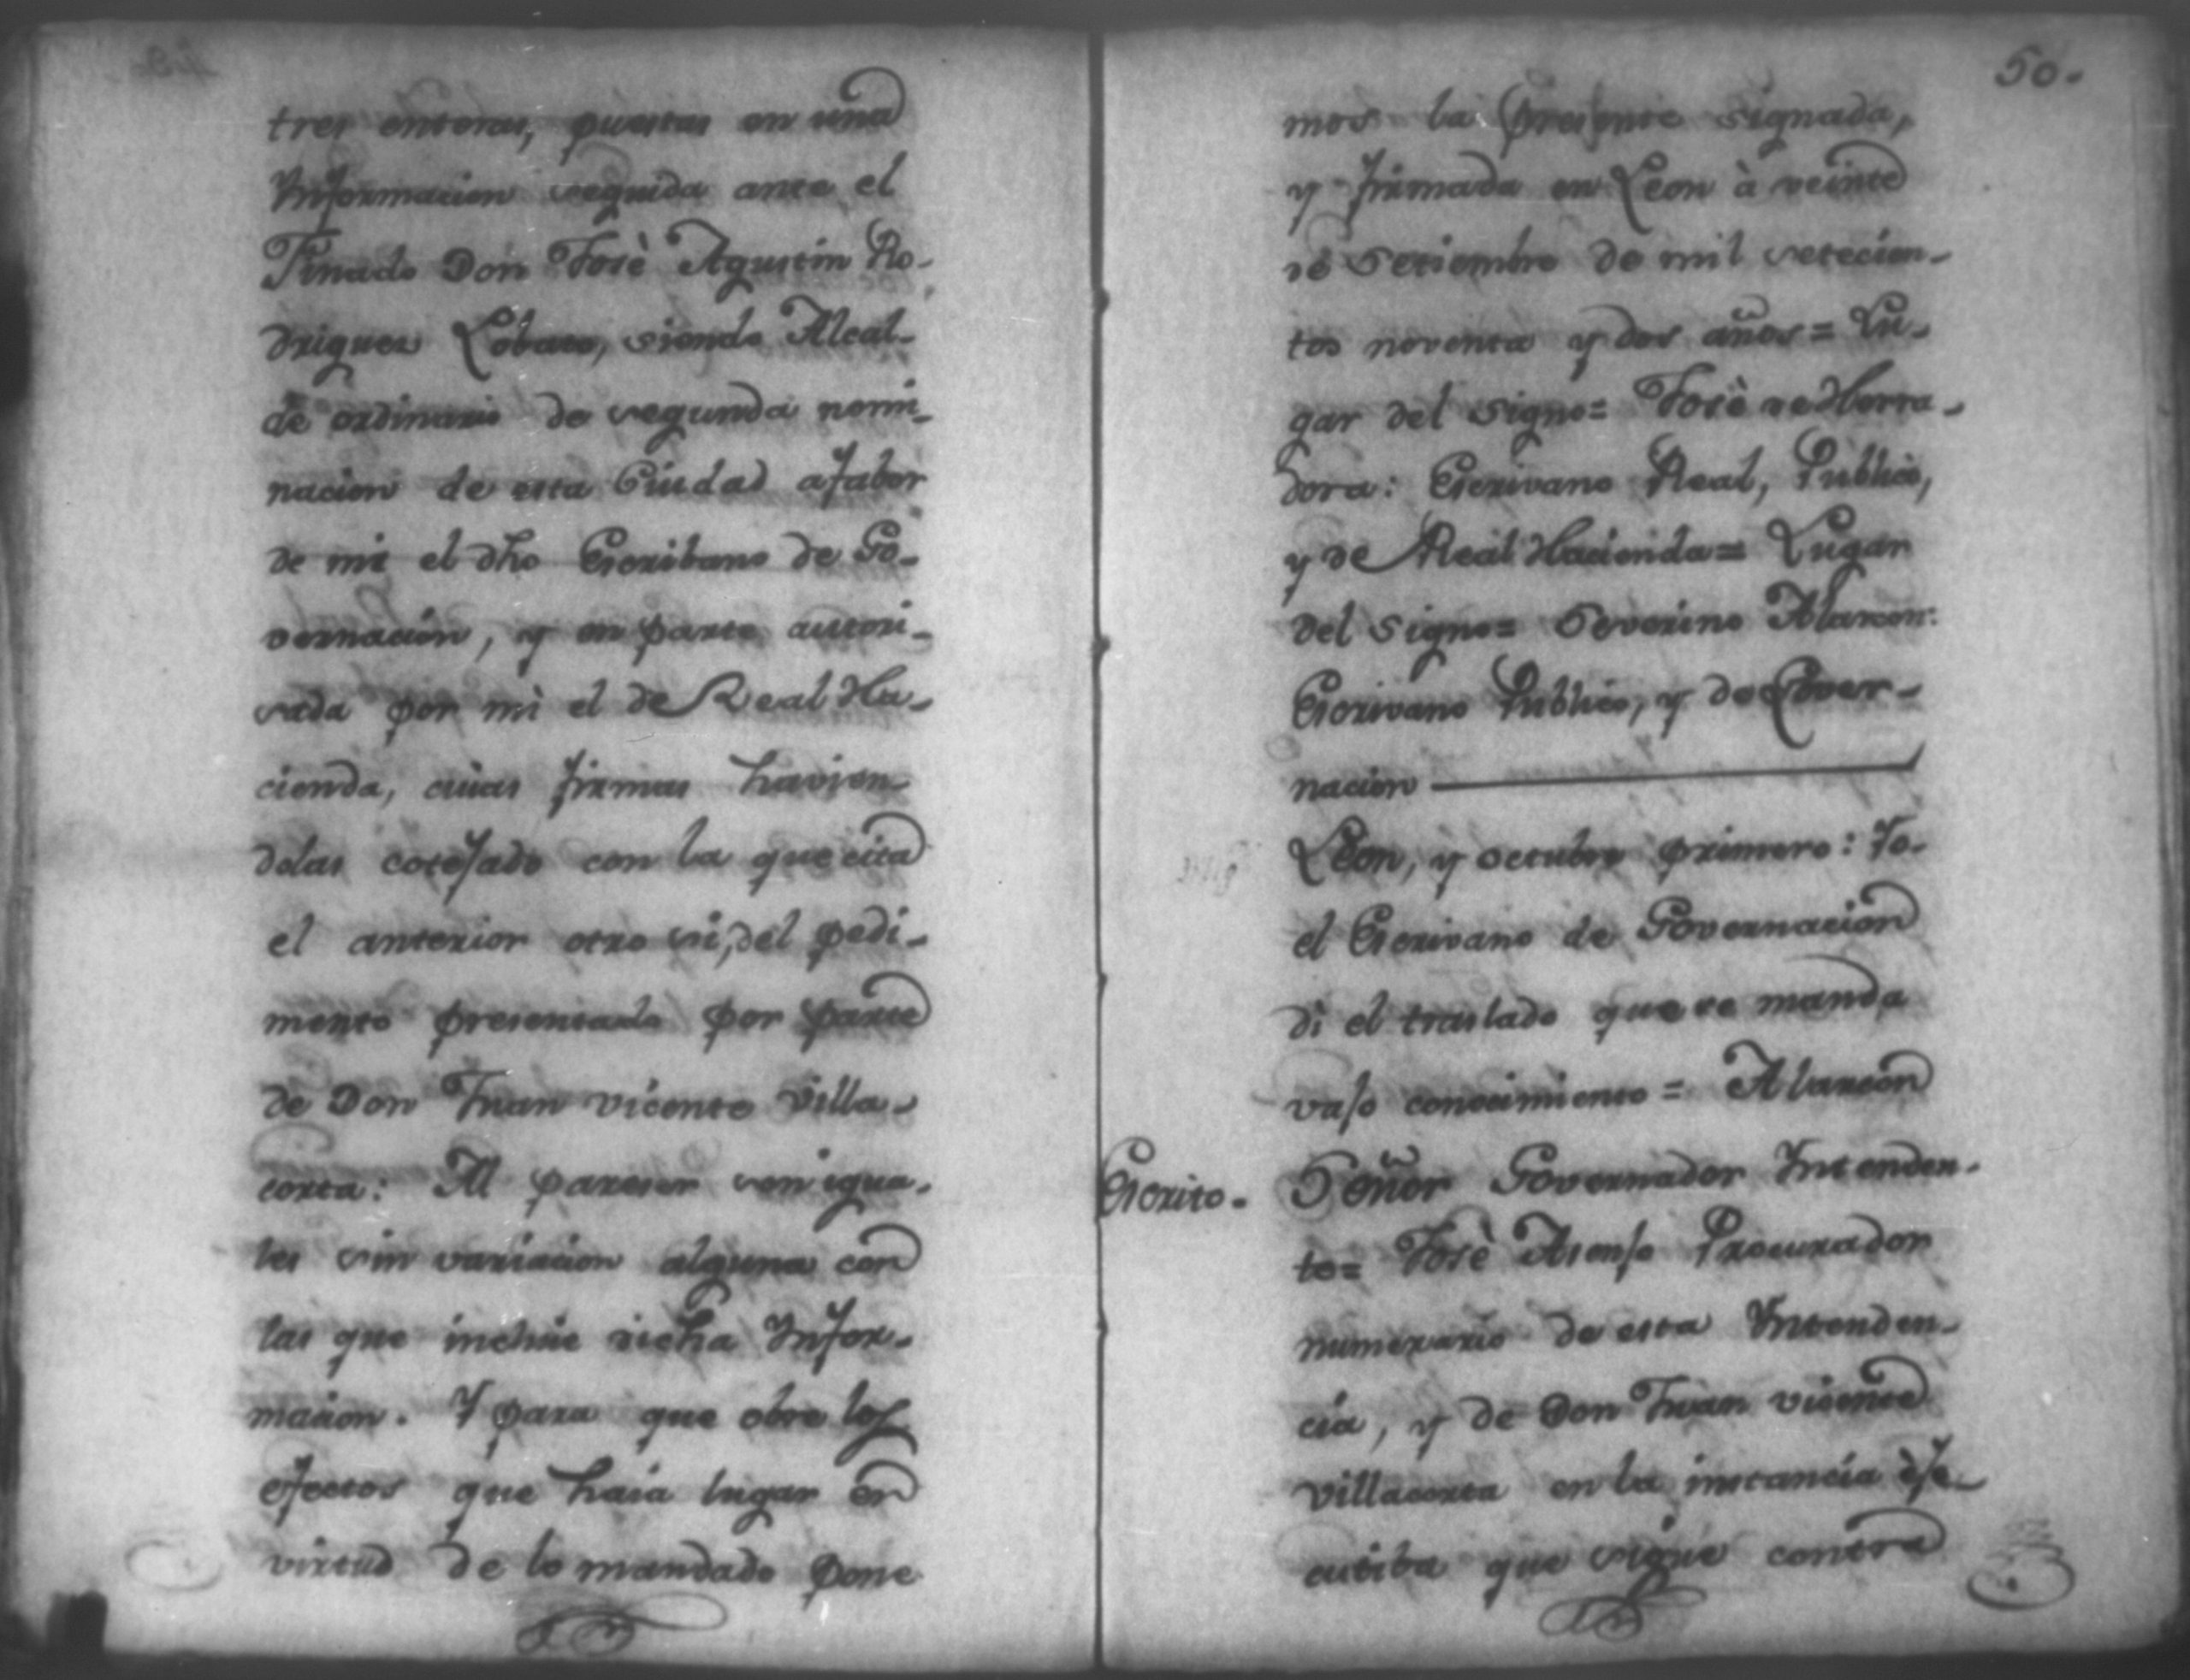 tres enteras, puestas en una
Informacion seguida ante el
Finado Don José Agustin Ro-
driguez Lobato, siendo Alcal-
de ordinario de segunda nomi-
nacion de esta Ciudad afabor
de mi el dho Escribano de Go-
vernacion, y en parte autori-
sada por mi el de Real Ha-
cienda, cuias firmas havien-
dolas cotejado con la que cita
el anterior otro si, del pedi-
mento presentado por parte
de Don Juan Vicente Villa-
corta: Al pareser son igua-
les sin variacion alguna con
las que incluie dicha Infor-
macion. Y para que obre los
efectos que haia lugar en
virtud de lo mandado pone
50.
mos la presente signada,
y firmada en Leon à veinte
de Setiembre de mil setecien-
tos noventa y dos años = Lu-
gar del signo = José de Herra-
dora: Escrivano Real, Publico,
y de Real Hacienda = Lugar
del signo = Severino Alarcon:
Escrivano Publico, y de Gover-
nacion
Leon, y octubre primero: Yo
el Escrivano de Governacion
di el traslado que se manda
vajo conocimiento = Alarcon
Escrito- Señor Governador Intenden-
te = José Asenjo Procurador
numerario de esta Intenden-
cia, y de Don Juan Vicente
Villacorta en la instancia eje-
cutiba que sigue contra